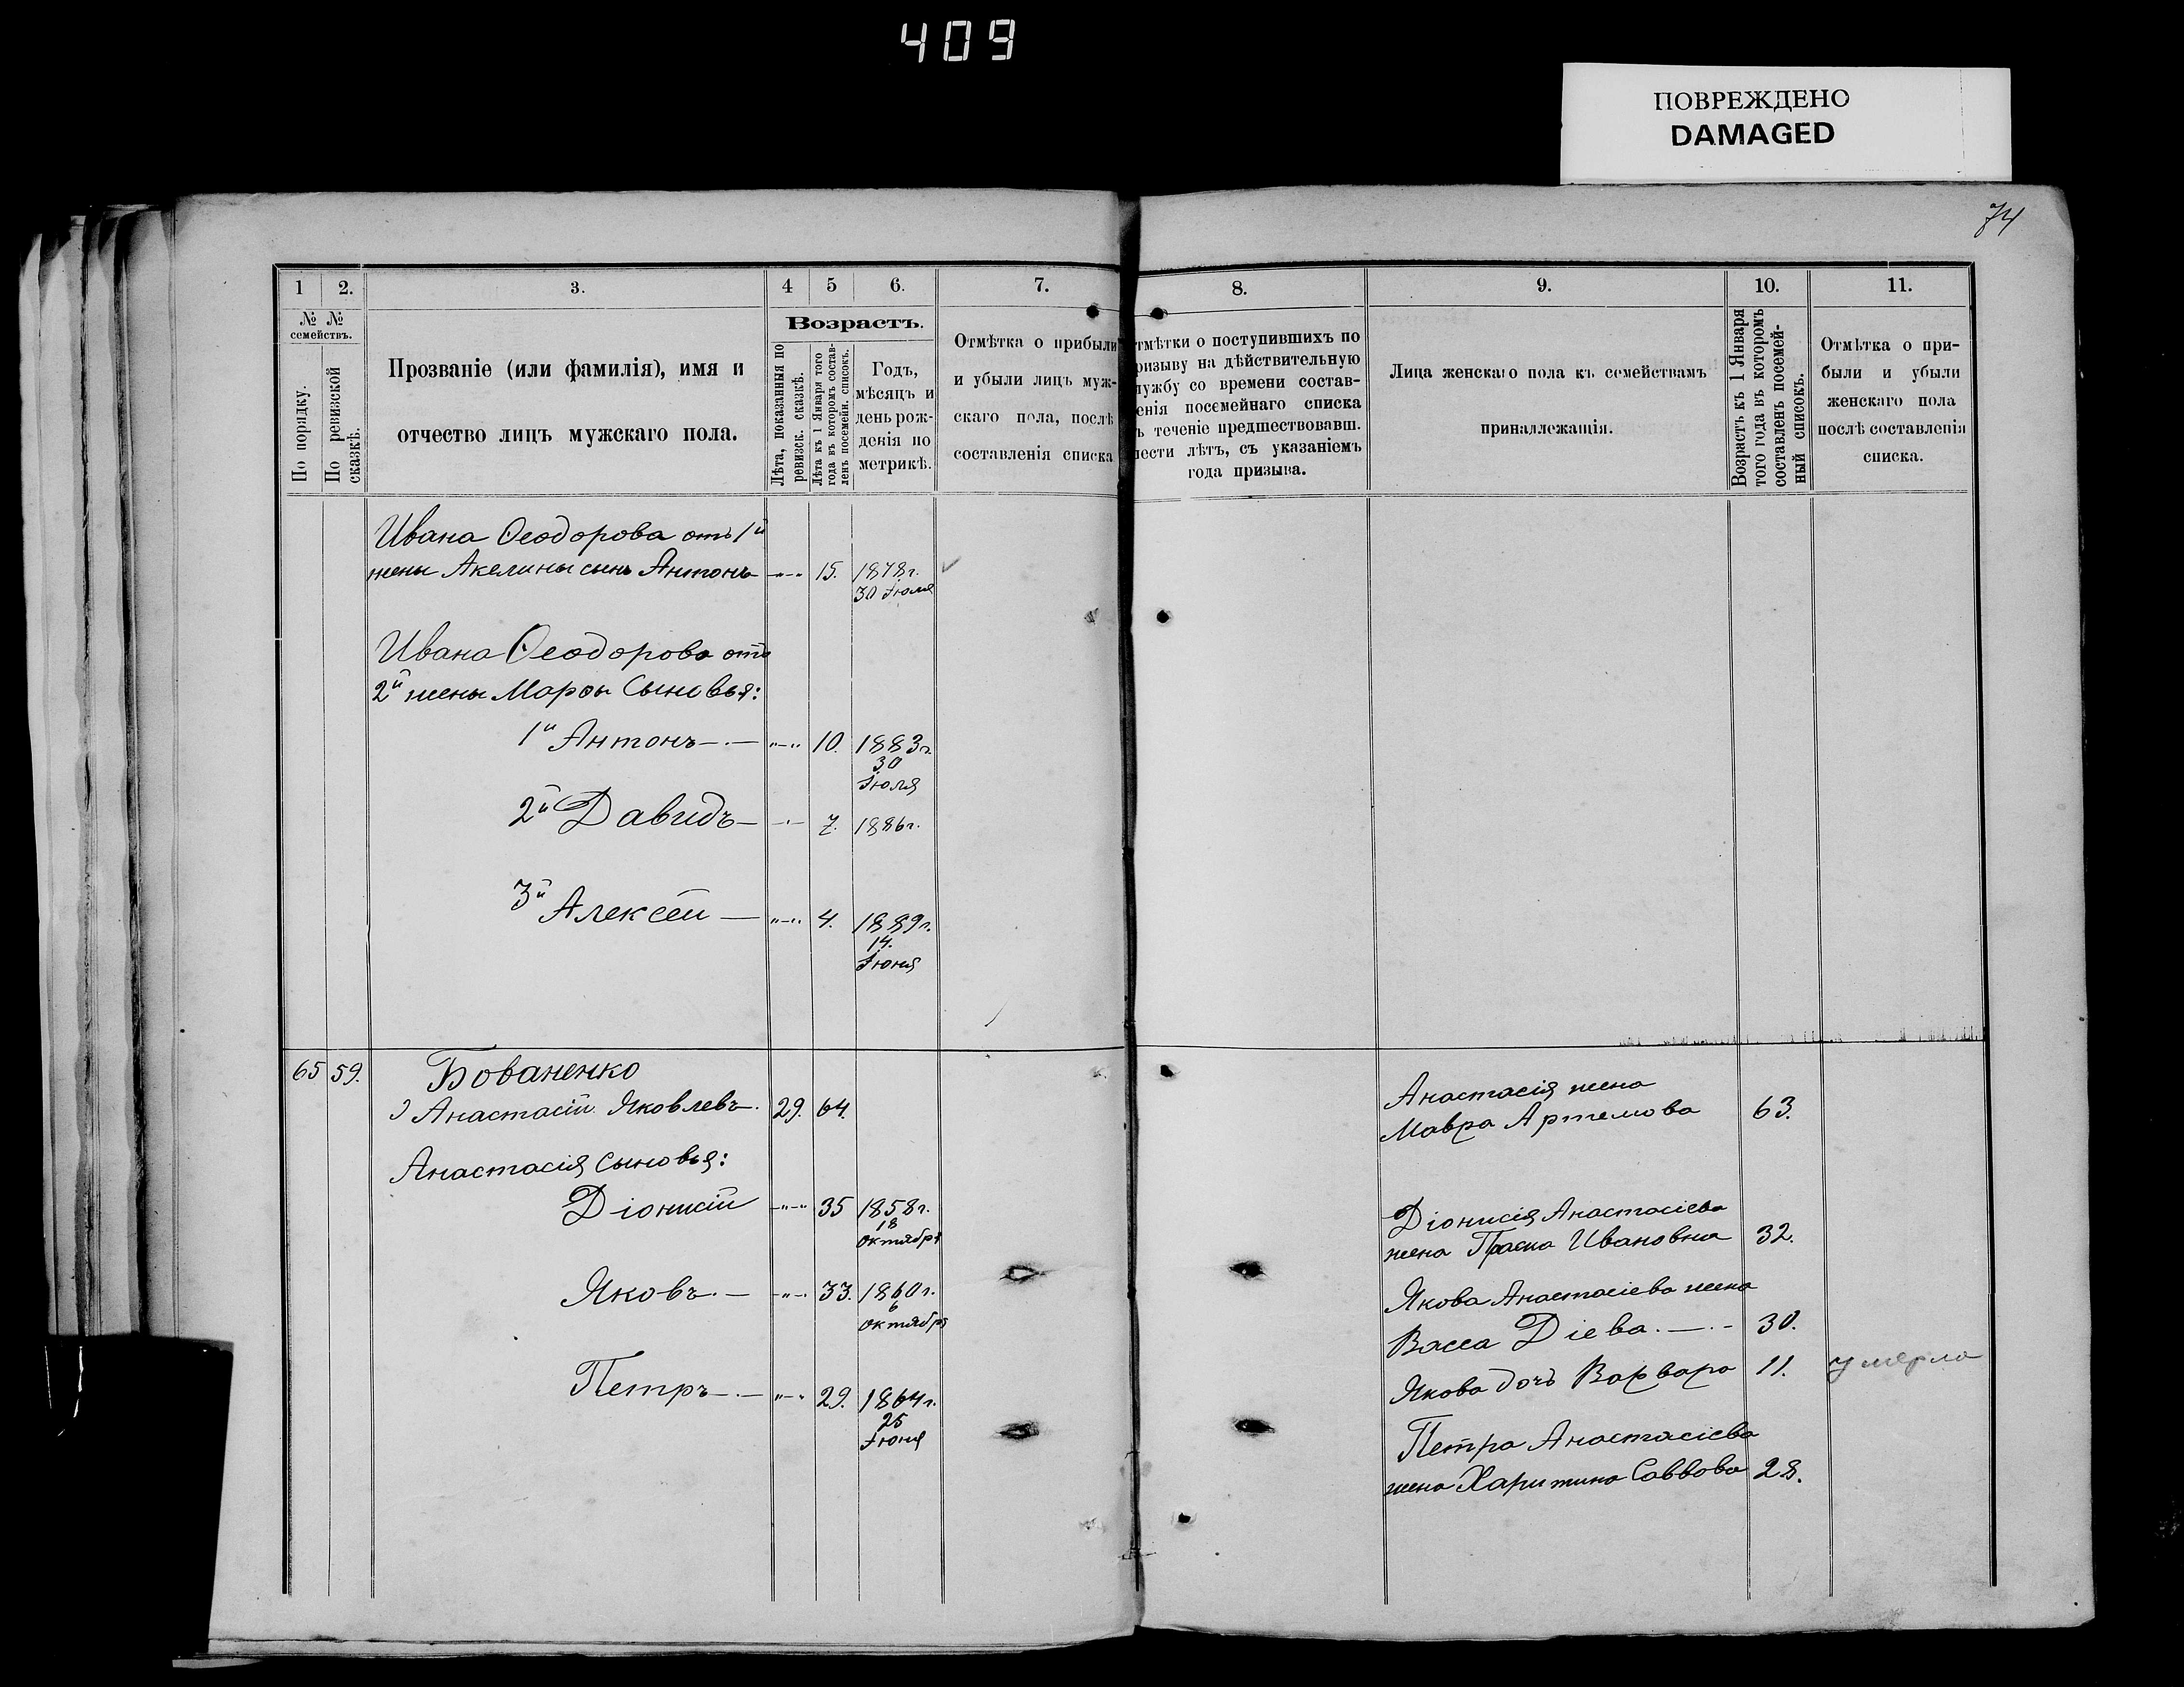 409
ПОВРЕЖДЕНО
DAMAGED
74
1 2. 3. 4 5 6. 7.
№ №
семействъ.
По порядку.
По ревизской
сказкѣ.
Прозваніе (или фамилія), имя и
отчество лицъ мужскаго пола.
Возрастъ.
Лѣта, показанныя по
ревизск. сказкѣ.
Лѣта къ 1 Января того
года въ которомъ состав-
ленъ посемейн. списокъ.
Годъ,
мѣсяцъ и
день рож-
денія по
метрикѣ.
Отмѣтка о прибыли
и убыли лицъ муж-
скаго пола, послѣ
составленія списка
Ивана Ѳеодорова отъ 1й
жены Акелины сынъ Антонъ 15. 1878г.
30 Іюля
Ивана Ѳеодорова отъ
2й жены Марѳы Сыновья:
1й Антонъ 10. 1883г.
30
Іюля
2й Давидъ 7. 1886г.
3й Алексѣй 4. 1889г.
14.
Іюня
65 59. Бованенко
Анастасій Яковлевъ. 29. 64.
Анастасія Сыновья:
Діонисій 35 1858г.
18
октября
Яковъ. 33. 1860г.
6
октября
Петръ 29. 1864г.
25
Іюня
8. 9. 10. 11.
тмѣтки о поступившихъ по
ризыву на дѣйствительную
лужбу со времени состав-
енія посемейнаго списка
ъ теченіе предшествовавш.
ести лѣтъ, съ указаніемъ
года призыва.
Лица женскаго пола къ семействамъ
принадлежащія.
Возрастъ къ 1 Января
того года въ которомъ
составленъ посемей-
ный списокъ.
Отмѣтка о при-
были и убыли
женскаго пола
послѣ составленія
списка.
Анастасія жена
Мавра Артемова 63.
Діонисія Анастасіева
жена Ивановна 32.
Якова Анастасіева жена
Васса Діева. 30.
Якова дочь Варвара 11. умерла
Петра Анастасіева
жена Харитина Саввова 28.